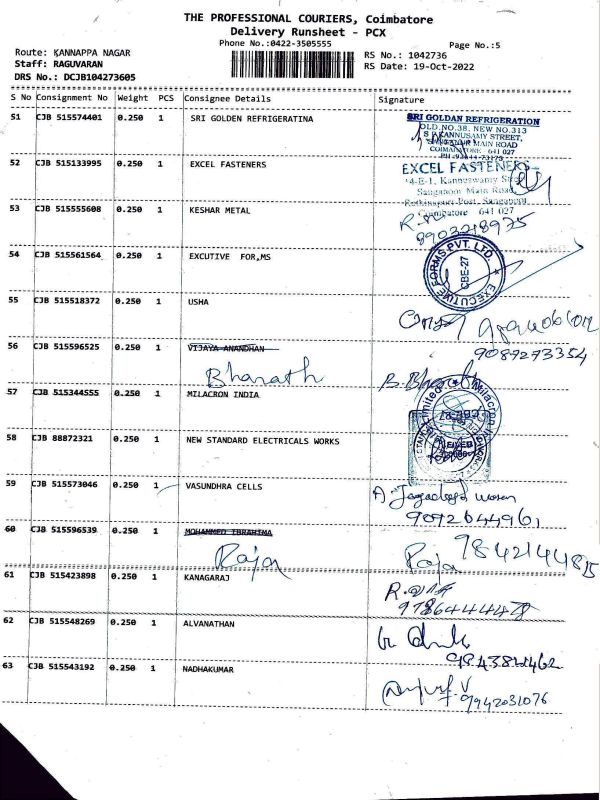 THE PROFESSIONAL COURIERS, Coimbatore
Delivery Runsheet - PCX
Phone No.:0422-3505555
Page No.:5
Route: KANNAPPA NAGAR
RS No.: 1042736
Staff: RAGUVARAN
RS Date: 19-Oct-2022
DRS No.: DCJB104273605
S No Consignment No Weight PCS Consignee Details Signature
51 CJB 515574401 0.250 1 SRI GOLDEN REFRIGERATINA
SRI GOLDAN REFRIGERATION
OLD NO.38, NEW NO.313
KANNUSAMY STREET,
MAIN ROAD
COIMBATORE 641 027
52 CJB 515133995 0.250 1 EXCEL FASTENERS
EXCEL FASTENERS
4-E-1, Kannuswamy
Sanganoor Main Road,
Coimbatore 641 027
53 CJB 515555608 0.250 1 KESHAR METAL
8903218975
54 CJB 515561564 0.250 1 EXCUTIVE FOR,MS
EXECUTIVE FORMS PVT. LTD
CBE-27
55 CJB 515518372 0.250 1 USHA
56 CJB 515596525 0.250 1 VIJAYA ANANDHAN
9087273354
Bharath
B. Bharath
57 CJB 515344555 0.250 1 MILACRON INDIA
Milacron
58 CJB 88872321 0.250 1 NEW STANDARD ELECTRICALS WORKS
59 CJB 515573046 0.250 1 VASUNDHRA CELLS
9092644961
60 CJB 515596539 0.250 1 MOHAMMED IBRAHIMA
Raja
Raja 9842144815
61 CJB 515423898 0.250 1 KANAGARAJ
62 CJB 515548269 0.250 1 ALVANATHAN
63 CJB 515543192 0.250 1 NADHAKUMAR
9942031076